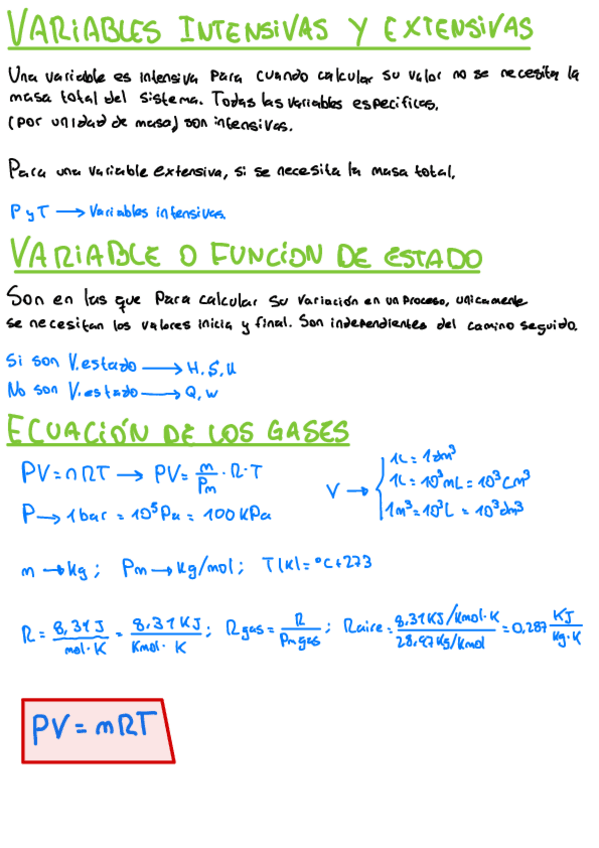 VARIABLES INTENSIVAS Y EXTENSIVAS
Una variable es intensiva para cuando calcular su valor no se necesita la
masa total del sistema. Todas las variables especificas,
(por unidad de masa) son intensivas.
Para una variable extensiva, si se necesita la masa total.
P y T → Variables intensivas.
VARIABLE O FUNCIÓN DE ESTADO
Son en las que para calcular su variación en un proceso, unicamente
se necesitan los valores inicia y final. Son independientes del camino seguido.
Si son V.estado → H, S, U
No son V.estado → Q, W
ECUACIÓN DE LOS GASES
PV = nRT → PV = m/Pm · R · T
V → 1L = 1dm³
1L = 10³mL = 10³cm³
1m³ = 10³L = 10³dm³
P → 1 bar = 10⁵Pa = 100 KPa
m → kg; Pm → kg/mol; T(K) = °C + 273
R = 8,31 J/mol·K = 8,31 KJ/Kmol·K; Rgas = R/Pm gas; Raire = 8,31 KJ/Kmol·K / 28,97 Kg/Kmol = 0,287 KJ/Kg·K
PV = mRT